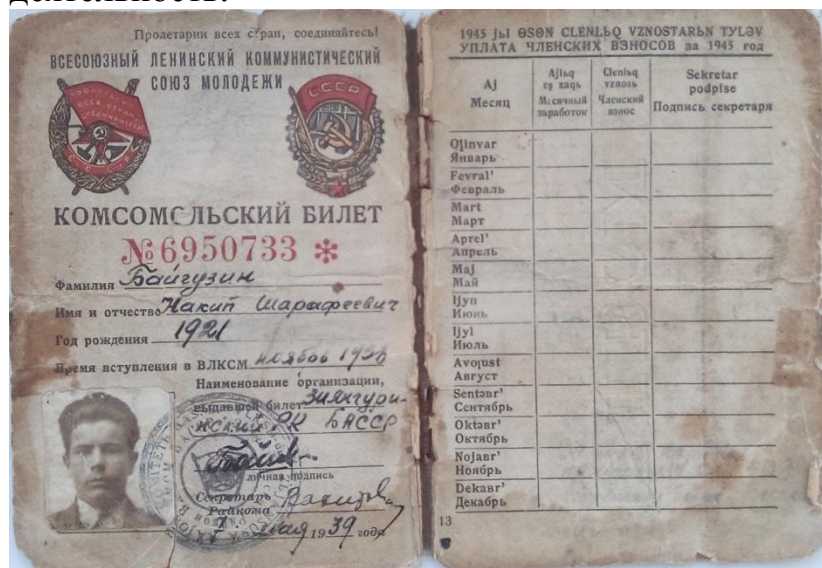 деятельность.
Пролетарии всех стран, соединяйтесь!
ВСЕСОЮЗНЫЙ ЛЕНИНСКИЙ КОММУНИСТИЧЕСКИЙ
СОЮЗ МОЛОДЕЖИ
СССР
КОМСОМОЛЬСКИЙ БИЛЕТ
№6950733 *
Фамилия Байгузин
Имя и отчество Накип Шарафеевич
Год рождения 1921
Время вступления в ВЛКСМ 1938
Наименование организации,
выдавшей билет Зиянгурин-
ский РК БАССР
личная подпись
Секретарь
Райкома
мая 1939 года
1945 JЬI ƟSƟN CLENLЬQ VZNOSTARЬN TYLƏV
УПЛАТА ЧЛЕНСКИХ ВЗНОСОВ за 1945 год
Aj
Месяц
Ajlьq
eş xaqь
Месячный
заработок
Clenlьq
vznosь
Членский
взнос
Sekretar
podpise
Подпись секретаря
Январь
Fevral'
Февраль
Mart
Март
Aprel'
Апрель
Maj
Май
Ijyn
Июнь
Ijyl
Июль
Август
Sentәbr'
Сентябрь
Oktәbr'
Октябрь
Nojәbr'
Ноябрь
Dekәbr'
Декабрь
13